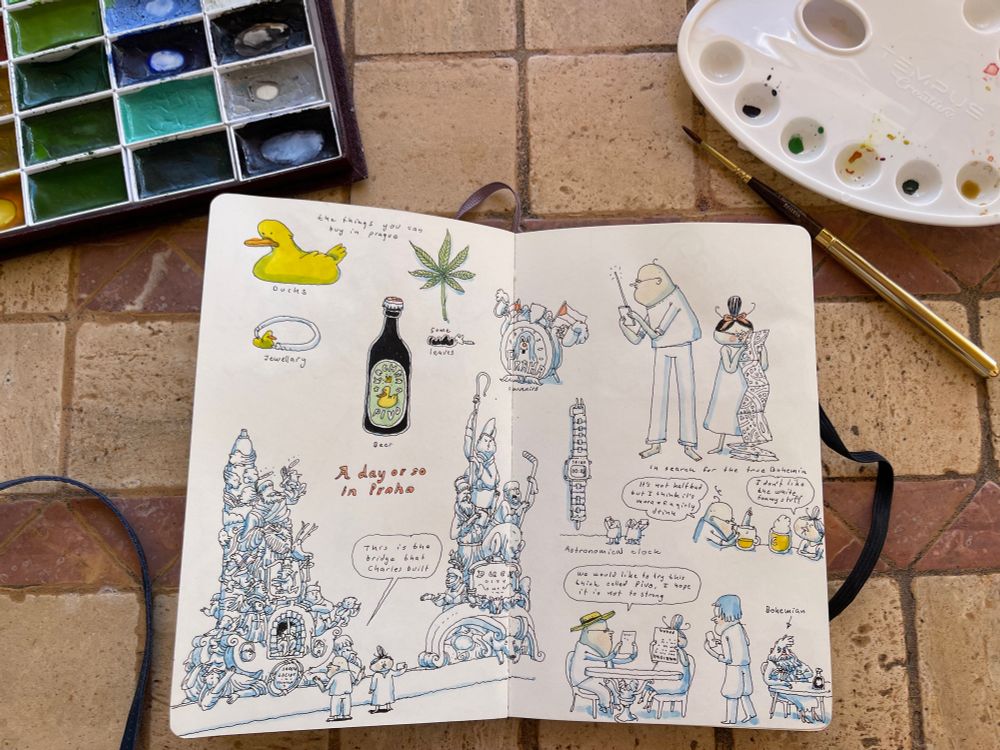 TEMPUS
Creative
the things you can
buy in prague
Ducks
Jewellary
Some
leaves
PIVO
Beer
PRAHA
souvenirs
A day or so
in Praha
This is the
bridge that
Charles built
Astronomical clock
in search for the true Bohemia
It's not half bad
but I think it's
more of a girly
drink
I don't like
the white
foamy stuff
we would like to try this
thing called Pivo, I hope
it is not to strong
Bohemian